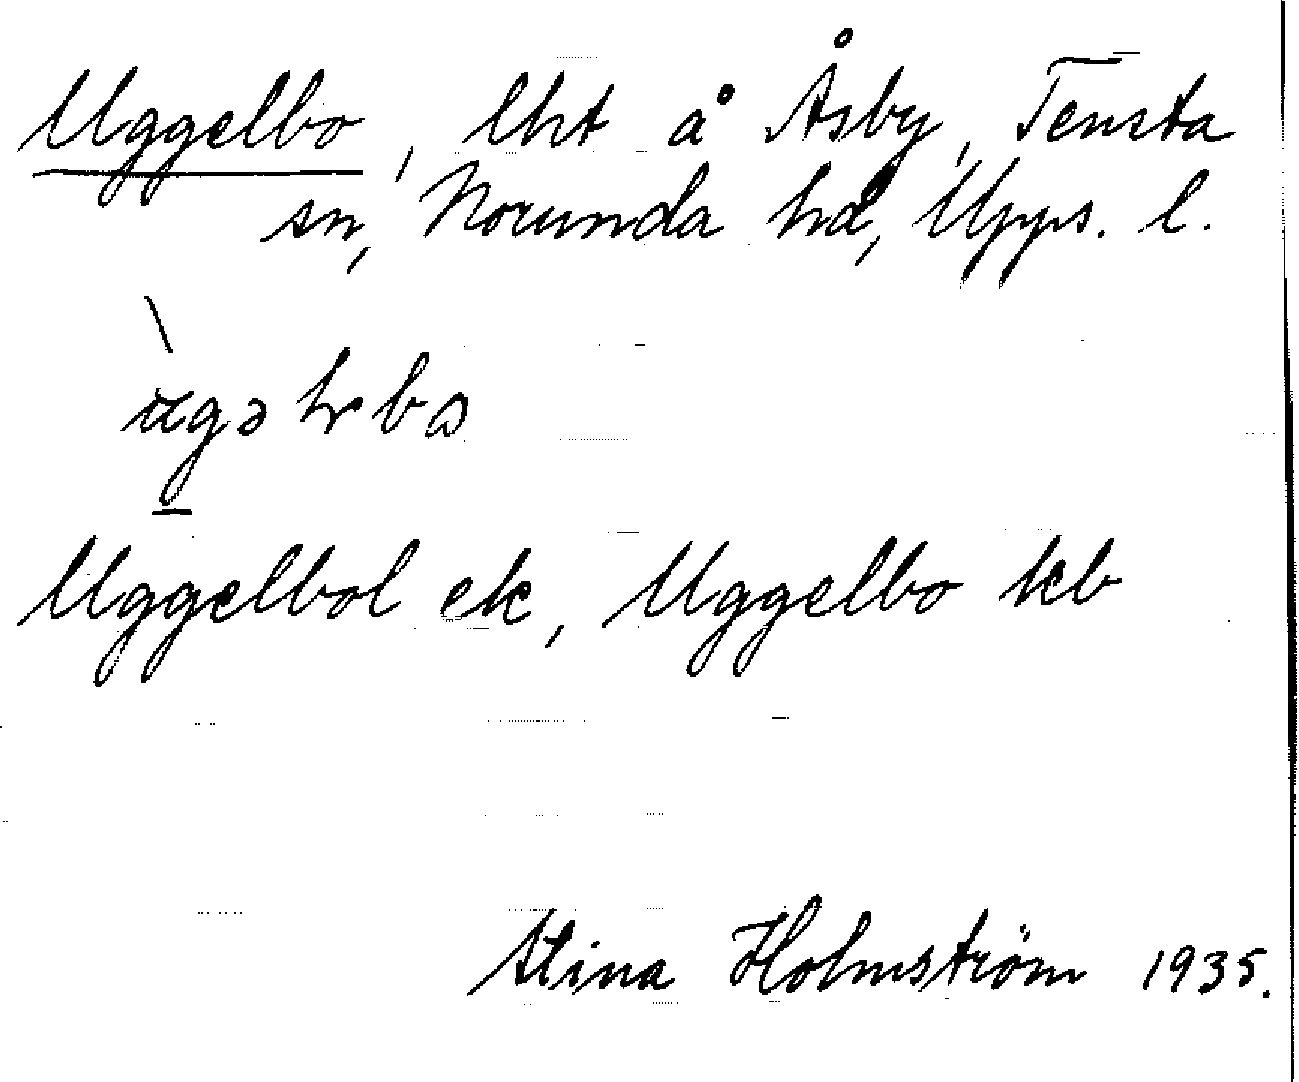 Uggelbo, lht å Åsby, Tensta
sn, Norunda hd, Upps. l.
Uggelbol ek, Uggelbo kb
Stina Holmström 1935.